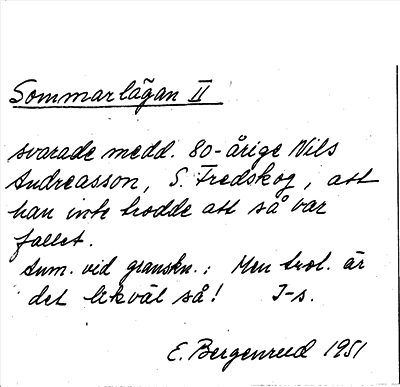 Sommarlågan II
svarade medd. 80-årige Nils
Andreasson, S. Fredskog, att
han inte trodde att så var
fallet.
Anm. vid granskn.: Men trol. är
det likväl så! I-s.
E. Bergenrud 1951